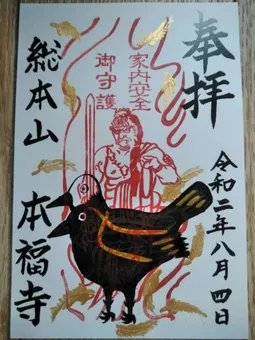 奉拝
家内安全
御守護
令和二年八月四日
総本山 本福寺